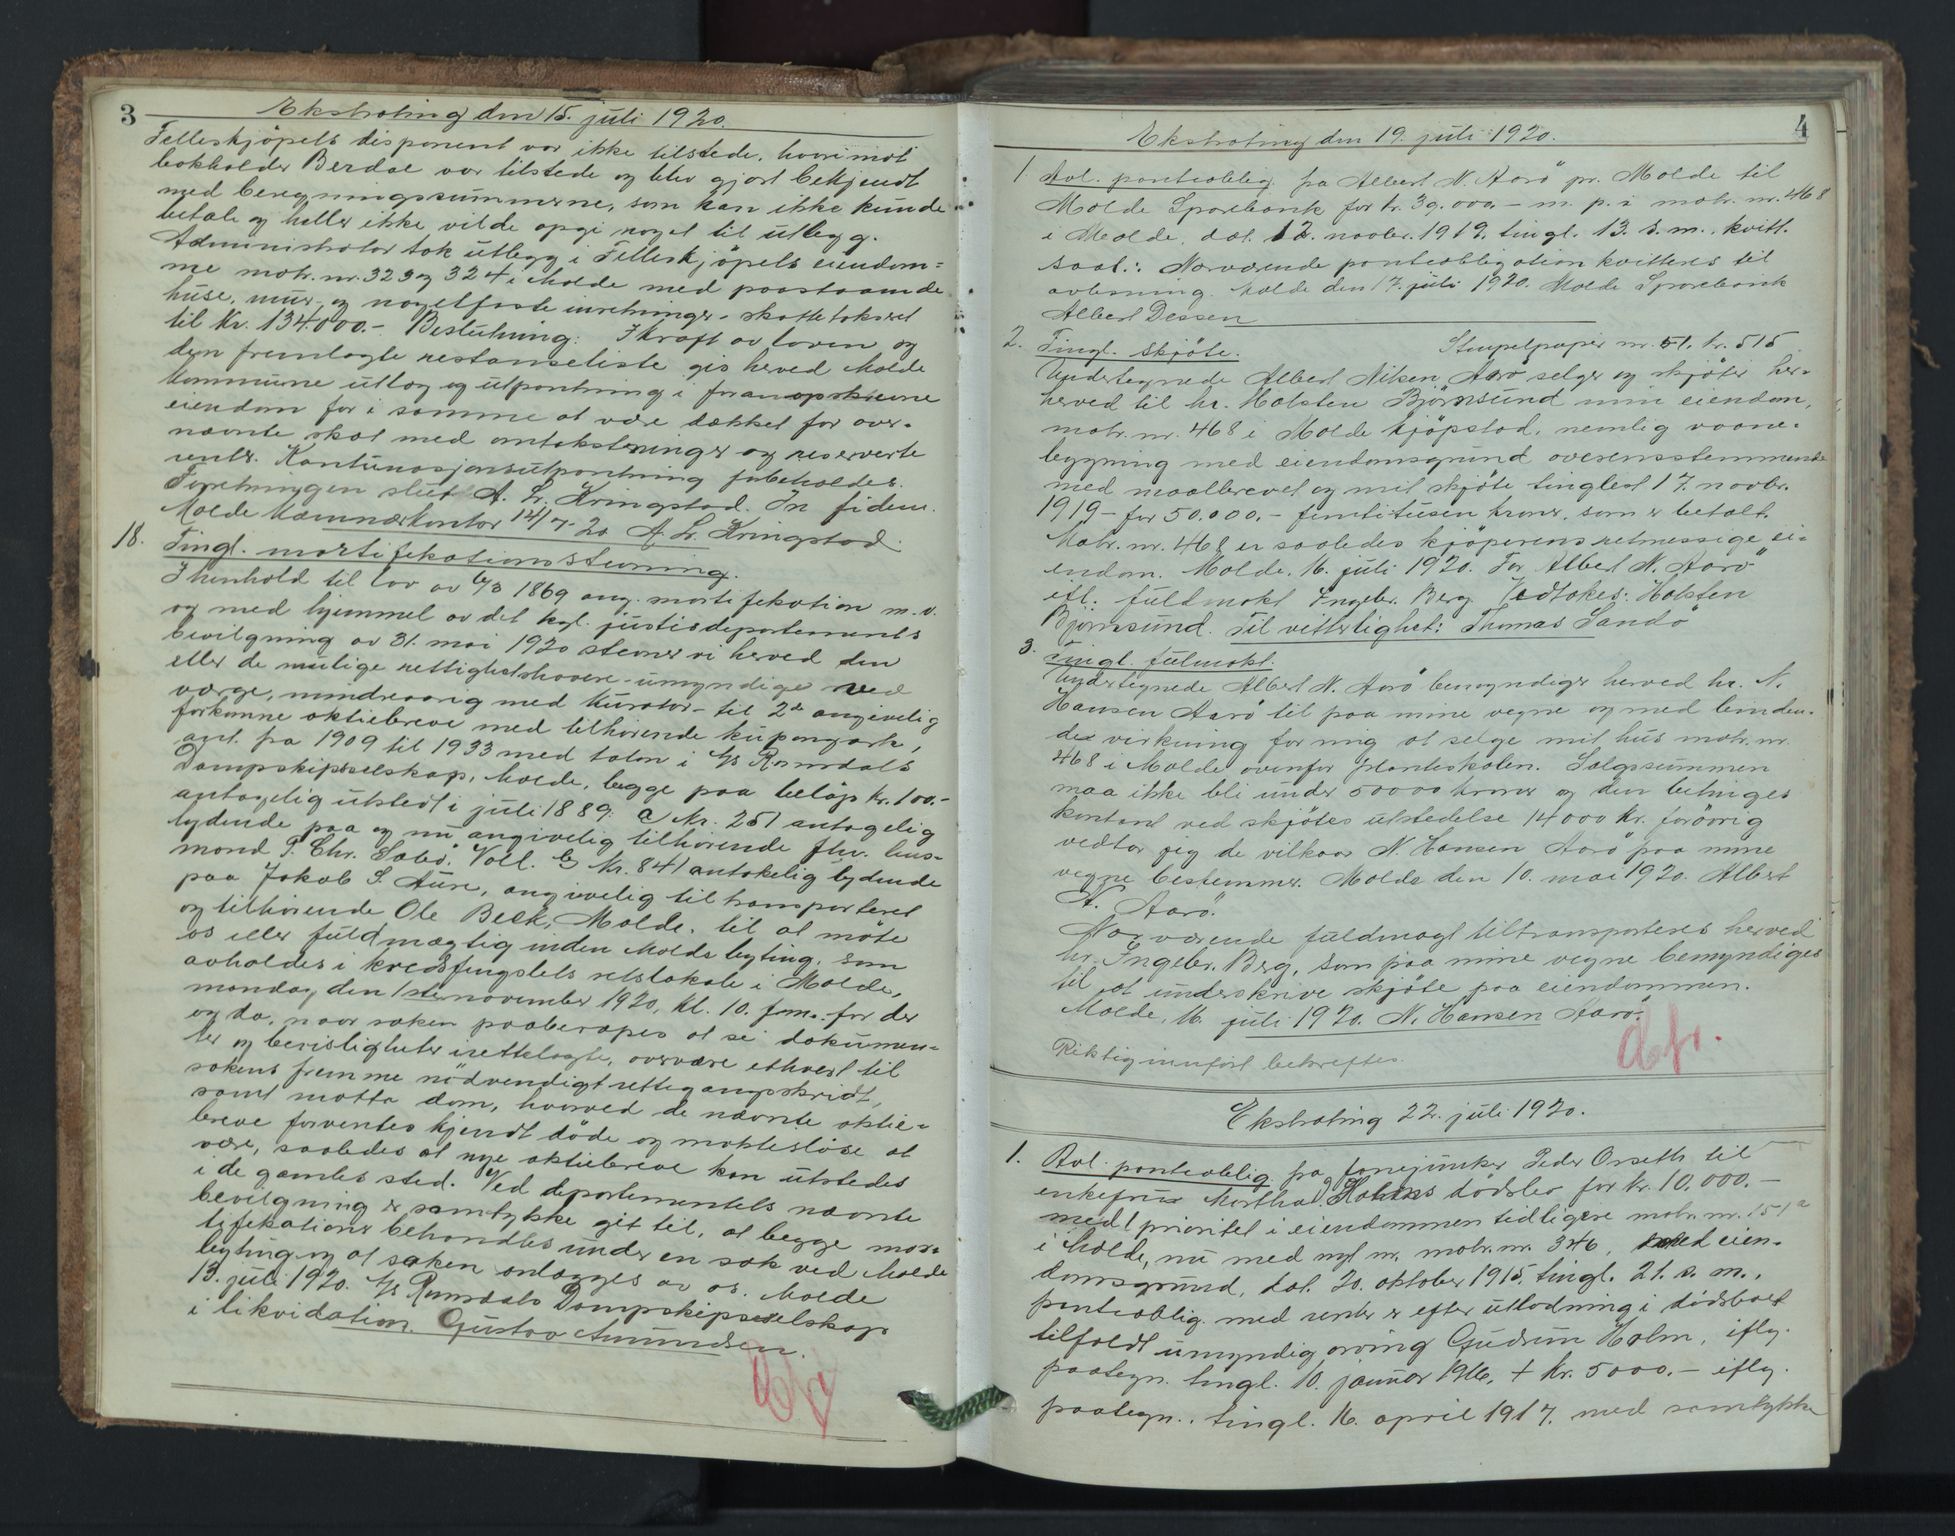 3
Ekstrating den 15. juli 1920.
Felleskjöpets disponent var ikke tilstede, hvorimot
bokholder Berdal var tilstede og blev gjort bekjendt
med beregningssummerne, som han ikke kunde
betale og heller ikke vilde opgi noget til utlegg.
Administrator tok utlegg i Felleskjöpets eiendom=
me matr. nr. 323 og 324 i Molde med paastaaende
huse, mur- og nagelfaste inretninger - skattetaksert
til Kr. 134.000.- Beslutning: I kraft av loven og
den fremlagte restanseliste gis herved Molde
kommune utlæg og utpantning i foranopskrevne
eiendom for i samme at være dækket for over-
nævnte skat med omkostninger og reserverte
renter. Kontinuasjonsutpantning forbeholdes.
Forretningen slut. A. Lr. Kringstad. In fidem.
Molde kæmnerkontor 14/7-20 A. Lr. Kringstad.
18. Tingl. mortifikationsstevning.
I henhold til lov av 6/3 1869 ang. mortifikation m. v.
og med hjemmel av det kgl. justisdepartements
bevilgning av 31. mai 1920 stevner vi herved den
eller de mulige rettighetshavere - umyndige ved
værge, mindreaarig med kurator - til 2de angivelig
forkomne aktiebreve med tilhörende kupongark,
ant. fra 1909 til 1933 med talon i A/s Romsdals
Dampskipsselskap, Molde, begge paa beløp kr. 100.-
antagelig utstedt i juli 1889: a Nr. 251 antagelig
lydende paa og nu angivelig tilhörende fhv. hus-
mand P. Chr. Sæbö, Voll. b Nr. 841 antakelig lydende
paa Jakob S. Aure, angivelig tiltransporteret
og tilhörende Ole Beck, Molde, til at möte
os eller fuldmægtig inden Molde byting, som
avholdes i kredsfengslets retslokale i Molde,
mandag den 1ste november 1920, kl. 10. fm. for der
og da, naar saken paaberopes at se dokumen=
ter og bevisligheter iretteლagte, overvære ethvert til
sakens fremme nödvendigt rettergangsskridt,
samt motta dom, hvorved de nævnte aktie=
breve forventes kjendt döde og magteslöse at
være, saaledes at nye aktiebreve kan utstedes
i de gamles sted. Ved departementets nævnte
bevilgning er samtykke git til, at begge mor=
tifikationer behandles under en sak ved Molde
byting og at saken anlægges av os. Molde
13. juli 1920. A/s Romsdals Dampskipsselskap
i likvidation. Gustav Amundsen.
4
Ekstrating den 19. juli 1920.
1. Avl. panteoblig. fra Albert N. Aarö pr. Molde til
Molde Sparebank for kr. 39.000 - m. p. i matr. nr. 468
i Molde, dat. 12. novbr. 1919, tingl. 13. s. m., kvitt.
saal.: Nærværende panteobligation kvitteres til
avlesning. Molde den 17. juli 1920. Molde Sparebank
Albert Dessen
2. Tingl. skjöte. Stempelpapir nr. 51. kr. 515
Undertegnede Albert Nilsen Aarö selger og skjöter her=
herved til hr. Halsten Björnsund min eiendom,
matr. nr. 468 i Molde kjöpstad, nemlig vaane-
bygning med eiendomsgrund overensstemmende
med maalbrevet og mit skjöte tinglest 17. novbr.
1919 - for 50.000.- femtitusen kroner, som er betalt.
Matr. nr. 468 er saaledes kjöperens retmessige ei-
endom. Molde, 16. juli 1920. For Albert N. Aarö
efl.: fuldmakt Ingebr. Berg. Vedtakes: Halsten
Björnsund. Til vetterlighet: Thomas Sandö
3. Tingl. fulmakt.
Undertegnede Albert N. Aarö bemyndiger herved hr. N.
Hansen Aarö til paa mine vegne og med binden-
de virkning for mig at selge mit hus matr. nr.
468 i Molde ovenfor planteskolen. Salgssummen
maa ikke bli under 50000 kroner og der betinges
kontant ved skjötes utstedelse 14000 kr. forövrig
vedtar jeg de vilkaar N. Hansen Aarö paa mine
vegne bestemmer. Molde den 10. mai 1920. Albert
N. Aarö.
Nærværende fuldmagt tiltransporteres herved
hr. Ingebr. Berg, som paa mine vegne bemyndiges
til at underskrive skjöte paa eiendommen.
Molde, 16. juli 1920. N. Hansen Aarö.
Riktig innfört bekreftes.
Ekstrating 22. juli 1920.
1. Avl. panteoblig. fra fanejunker Peder Orseth til
enkefru Martha Holms dödsbo for kr. 10.000.-
med 1 prioritet i eiendommen tidligere matr. nr. 151a
i Molde, nu med nyt nr. matr. nr. 346, med eien-
domsgrund, dat. 20. oktober 1915, tingl. 21. s. m.,
panteoblig. med renter er efter utlodning i dödsboet
tilfaldt umyndig arving Gudrun Holm, ifly.
paategn. tingl. 10. januar 1916, + kr. 5000.- ifly.
paategn., tingl. 16. april 1917, med samtykke